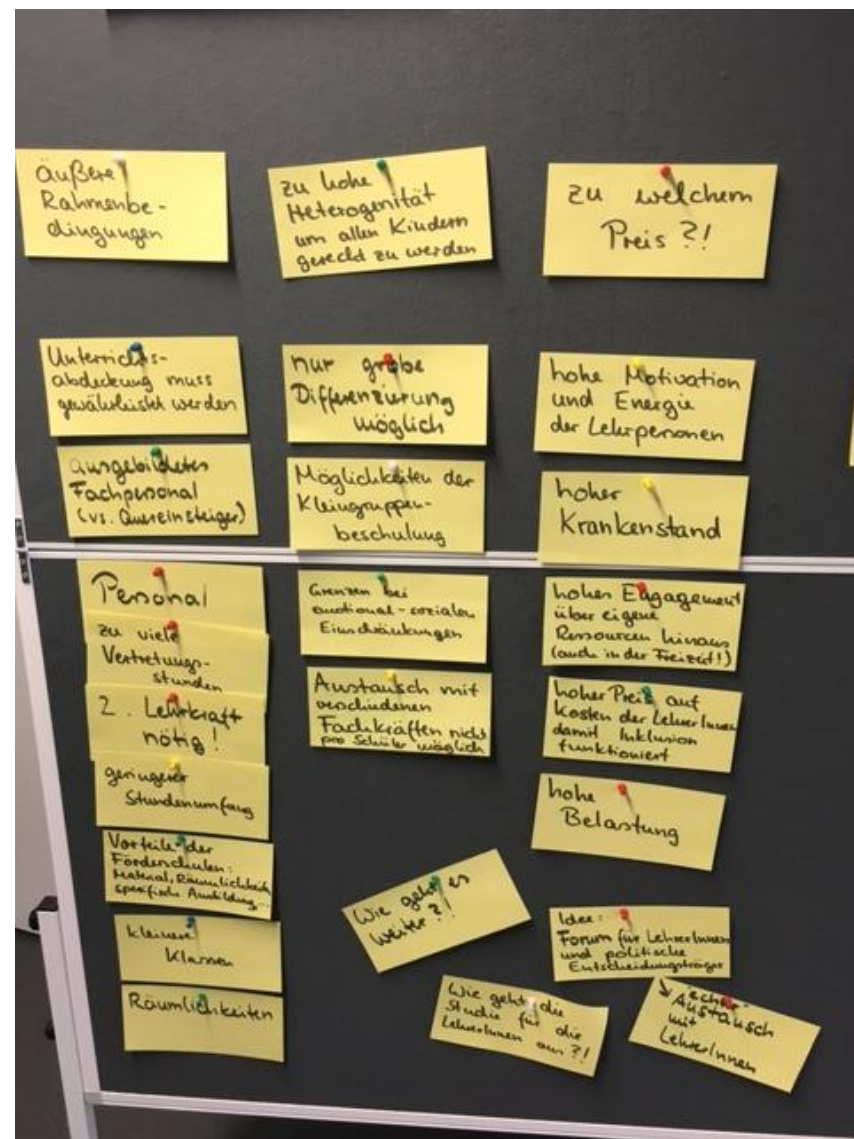 äußere
Rahmenbe-
dingungen
Unterrichts-
abdeckung muss
gewährleistet werden
ausgebildetes
Fachpersonal
(vs. Quereinsteiger)
Personal
zu viele
Vertretungs-
stunden
2. Lehrkraft
nötig!
geringerer
Stundenumfang
Vorteile der
Förderschulen:
Material, Räumlichkeit,
spezifische Ausbildung...
kleinere
Klassen
Räumlichkeiten
zu hohe
Heterogenität
um allen Kindern
gerecht zu werden
nur grobe
Differenzierung
möglich
Möglichkeiten der
Kleingruppen-
beschulung
Grenzen bei
emotional-sozialen
Einschränkungen
Austausch mit
verschiedenen
Fachkräften nicht
pro Schüler möglich
zu welchem
Preis ?!
hohe Motivation
und Energie
der Lehrpersonen
hoher
Krankenstand
hohes Engagement
über eigene
Ressourcen hinaus
(auch in der Freizeit!)
hoher Preis auf
Kosten der LehrerInnen
damit Inklusion
funktioniert
hohe
Belastung
Wie geht es
weiter ?!
Idee:
Forum für LehrerInnen
und politische
Entscheidungsträger
Wie geht die
Studie für die
LehrerInnen aus ?!
↳ "echter"
Austausch
mit
LehrerInnen